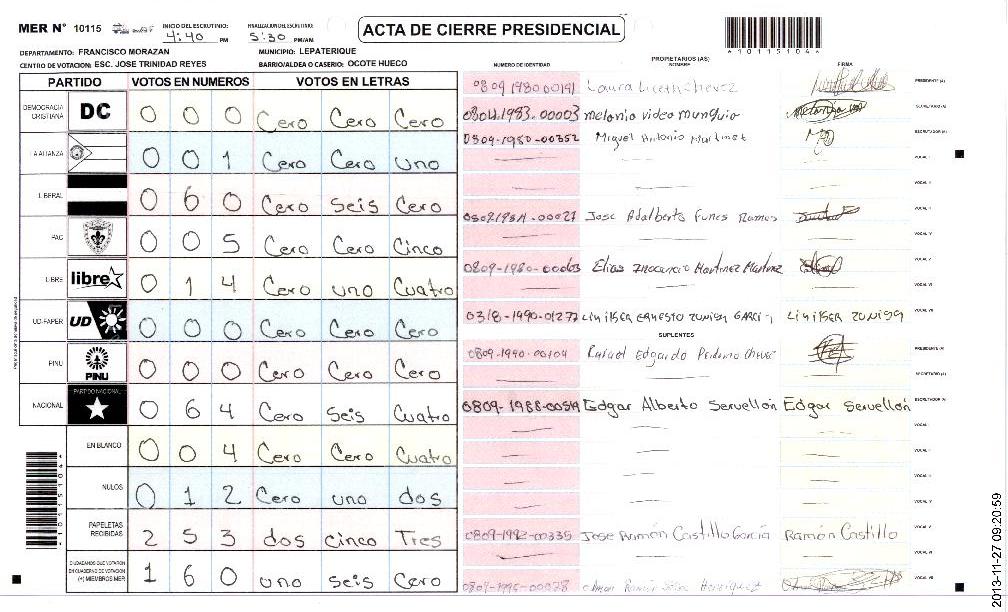 MER N° 10115
INICIO DEL ESCRUTINIO: 4:40 PM
FINALIZACION DEL ESCRUTINIO: 5:30 PM/AM.
ACTA DE CIERRE PRESIDENCIAL
*10115104*
DEPARTAMENTO: FRANCISCO MORAZAN
MUNICIPIO: LEPATERIQUE
CENTRO DE VOTACION: ESC. JOSE TRINIDAD REYES
BARRIO/ALDEA O CASERIO: OCOTE HUECO
PARTIDO VOTOS EN NUMEROS VOTOS EN LETRAS
DEMOCRACIA CRISTIANA DC 0 0 0 Cero Cero Cero
LA ALIANZA 0 0 1 Cero Cero uno
LIBERAL 0 6 0 Cero seis Cero
PAC 0 0 5 Cero Cero Cinco
LIBRE libre 0 1 4 Cero uno Cuatro
UD-FAPER UD 0 0 0 Cero Cero Cero
PINU PINU 0 0 0 Cero Cero Cero
NACIONAL PARTIDO NACIONAL 0 6 4 Cero seis Cuatro
EN BLANCO 0 0 4 Cero Cero Cuatro
NULOS 0 1 2 Cero uno dos
PAPELETAS RECIBIDAS 2 5 3 dos cinco Tres
CIUDADANOS QUE VOTARON EN CUADERNO DE VOTACION (+) MIEMBROS MER 1 6 0 uno seis Cero
NUMERO DE IDENTIDAD
PROPIETARIOS (AS)
NOMBRE
FIRMA
0809 1980 00191 Laura PRESIDENTE (A)
0804.1983.00003 melania video munguia SECRETARIO (A)
0809-1980-00352 Miguel Antonio Martinez ESCRUTADOR (A)
VOCAL I
VOCAL II
-00027 Jose Adalberto Funes Ramos
VOCAL IV
0809-1980-00063 Elias Inocencio Martinez Martinez VOCAL V
VOCAL VI
0318-1990-01277 ERNESTO ZUNIGA VOCAL VII
SUPLENTES
0809-1990-00104 Rafael Edgardo PRESIDENTE (A)
SECRETARIO (A)
0809-1988- Edgar Alberto Servellón Edgar Servellón ESCRUTADOR (A)
VOCAL I
VOCAL II
VOCAL IV
0809-1992-00335 Jose Ramón Castillo García Ramón Castillo VOCAL V
VOCAL VI
Ramón VOCAL VII
*10115104*
2013-11-27 09:20:59